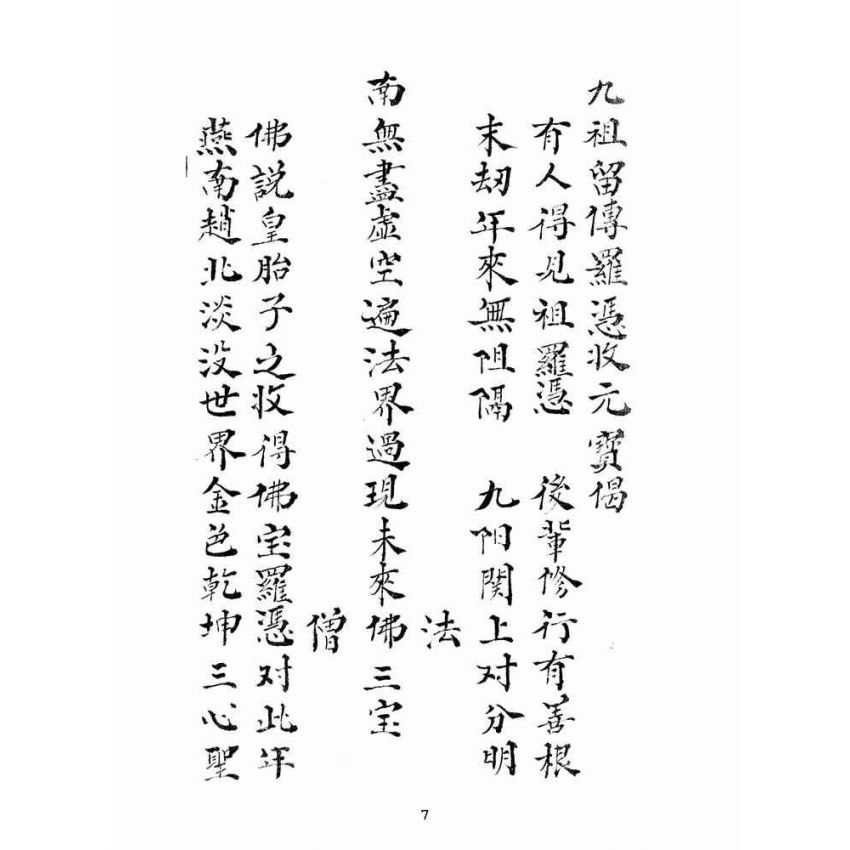 九祖留傳羅憑收元寶偈
有人得見祖羅憑 後輩修行有善根
末刼年來無阻隔 九阳関上对分明
法
南無盡虛空遍法界過現未來佛三宝
僧
佛説皇胎子之收得佛宝羅憑对此年
燕南趙北淡没世界金色乾坤三心聖
7